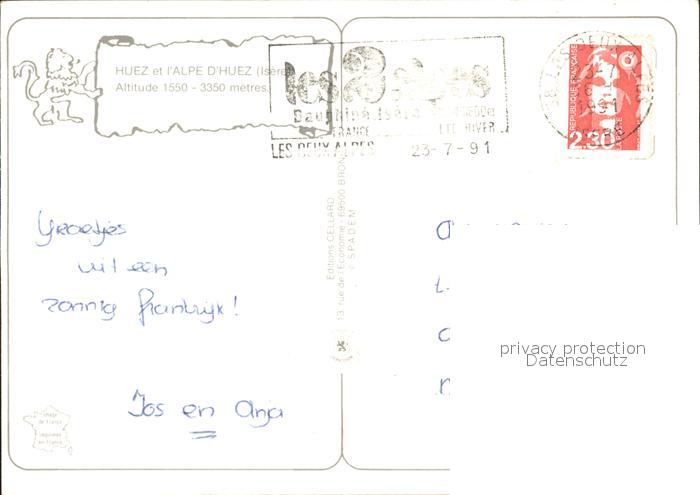 HUEZ et l'ALPE D'HUEZ (Isère)
Altitude 1550 - 3350 mètres.
les 2 alpes
Dauphiné Isère
FRANCE ETE HIVER
LES DEUX ALPES 23-7-91
1991
REPUBLIQUE FRANÇAISE
2.30
Groetjes
uit een
zonnig Frankrijk!
Jos en Anja
Editions CELLARD
13, rue de l'Économie - 69500 BRON
SPADEM
image
de france
imprimée
en france
privacy protection
Datenschutz